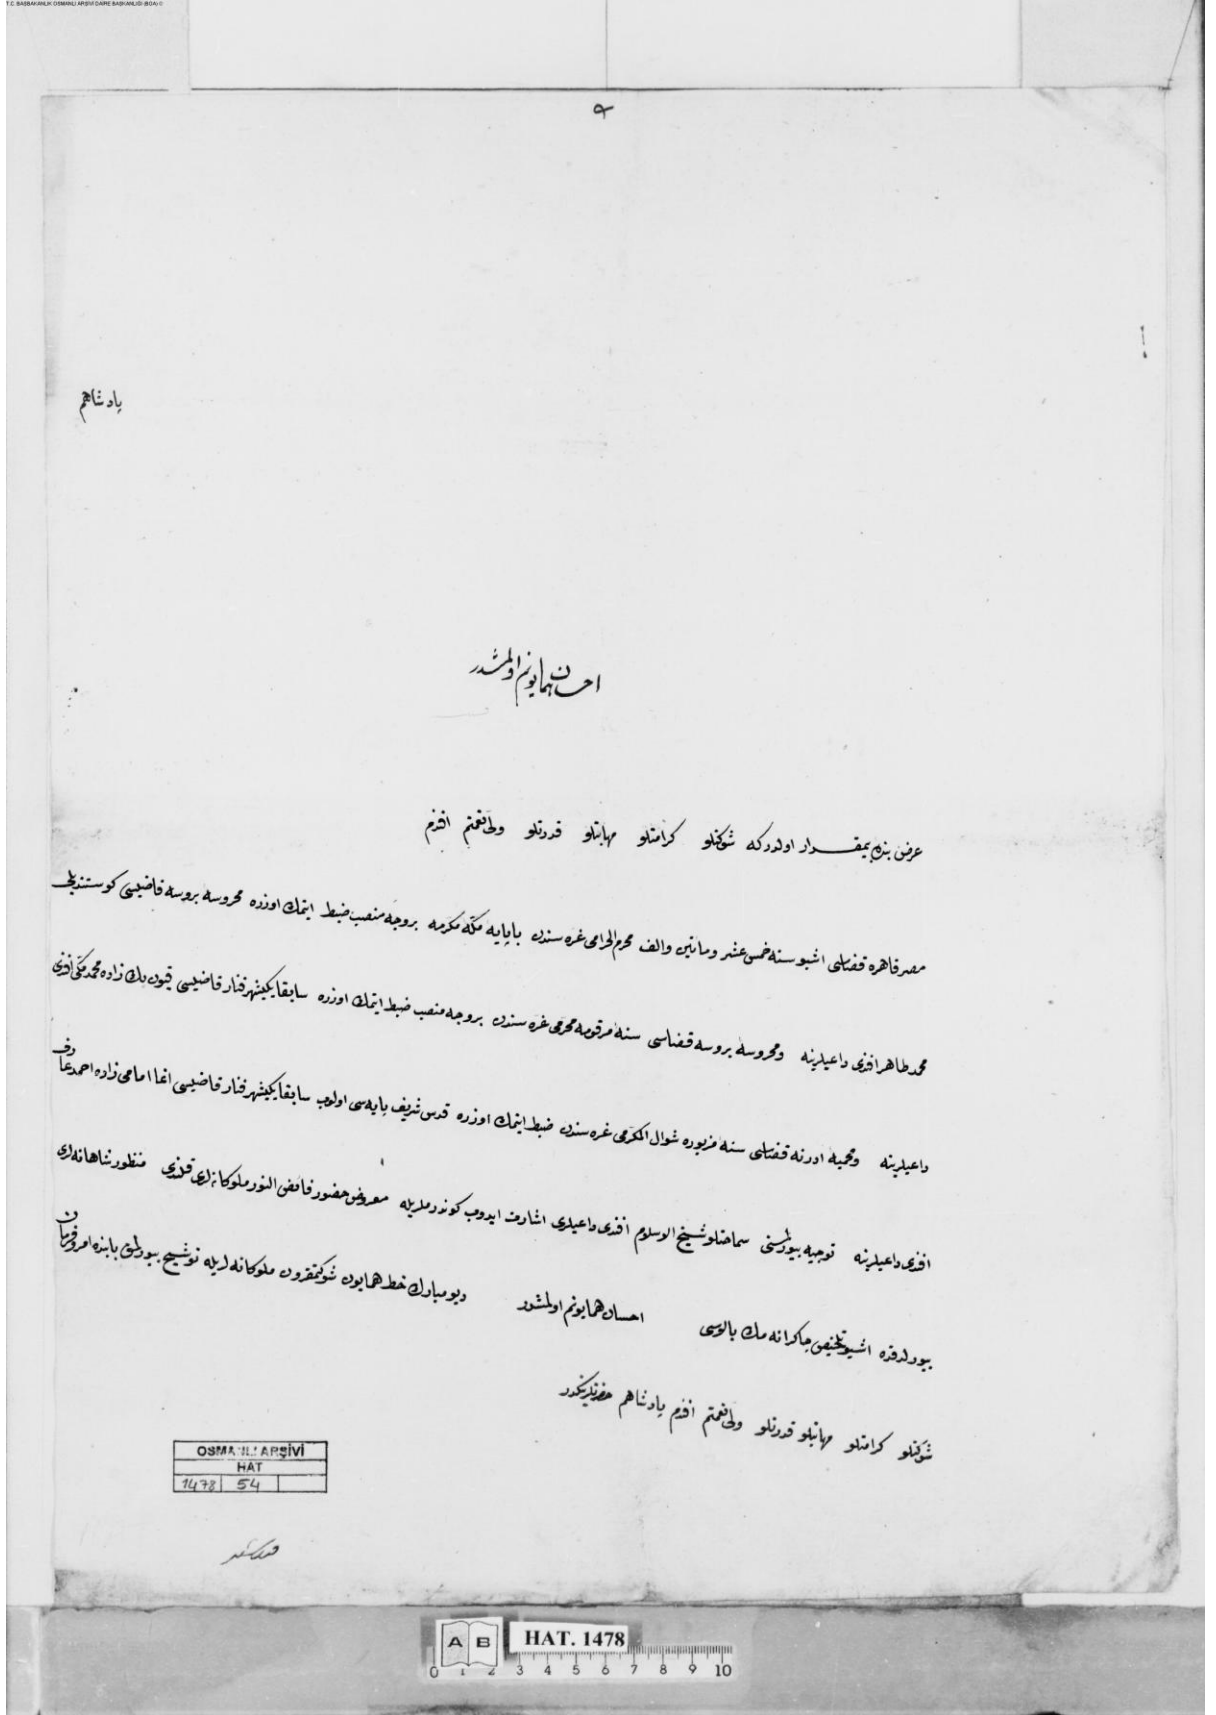 T.C. BAŞBAKANLIK OSMANLI ARŞİVİ DAİRE BAŞKANLIĞI (BOA) ©
پادشاهم
احسان همایونم اولمشدر
عرض بندهٔ بیمقدار اولدركه شوكتلو كرامتلو مهابتلو قدرتلو ولی نعمتم افندم
مصر قاهره قضاسی اشبو سنه خمس عشر ومائتین والف محرم الحرامی غره سندن باپایهٔ مكهٔ مكرمه بروجه منصب ضبط ایتمك اوزره محروسه بروسه قاضیسی كوستندیلی
محمد طاهر افندی داعیلرینه ومحروسه بروسه قضاسی سنه مرقومه محرمی غره سندن بروجه منصب ضبط ایتمك اوزره سابقا یكیشهر فنار قاضیسی قیون بك زاده محمد مكی افندی
داعیلرینه ومحمیه ادرنه قضاسی سنه مزبوره شوال المكرمی غره سندن ضبط ایتمك اوزره قدس شریف پایه سی اولوب سابقا یكیشهر فنار قاضیسی اغا امامی زاده احمد عارف
افندی داعیلرینه توجیه بیورلمسنی سماحتلو شیخ الاسلام افندی داعیلری اشارت ایدوب كوندرملریله معروض حضور فائض النور ملوكانه لری قلندی منظور شاهانه لری
بیورلدقده اشبو تلخیص چاكرانه مك بالاسی احسان همایونم اولمشدر دیو مبارك خط همایون شوكتمقرون ملوكانه لریله توشیح بیورلمق بابنده امر وفرمان
شوكتلو كرامتلو مهابتلو قدرتلو ولی نعمتم افندم پادشاهم حضرتلرینكدر
OSMANLI ARŞİVİ
HAT
1478 54
A B
HAT. 1478
0 1 2 3 4 5 6 7 8 9 10